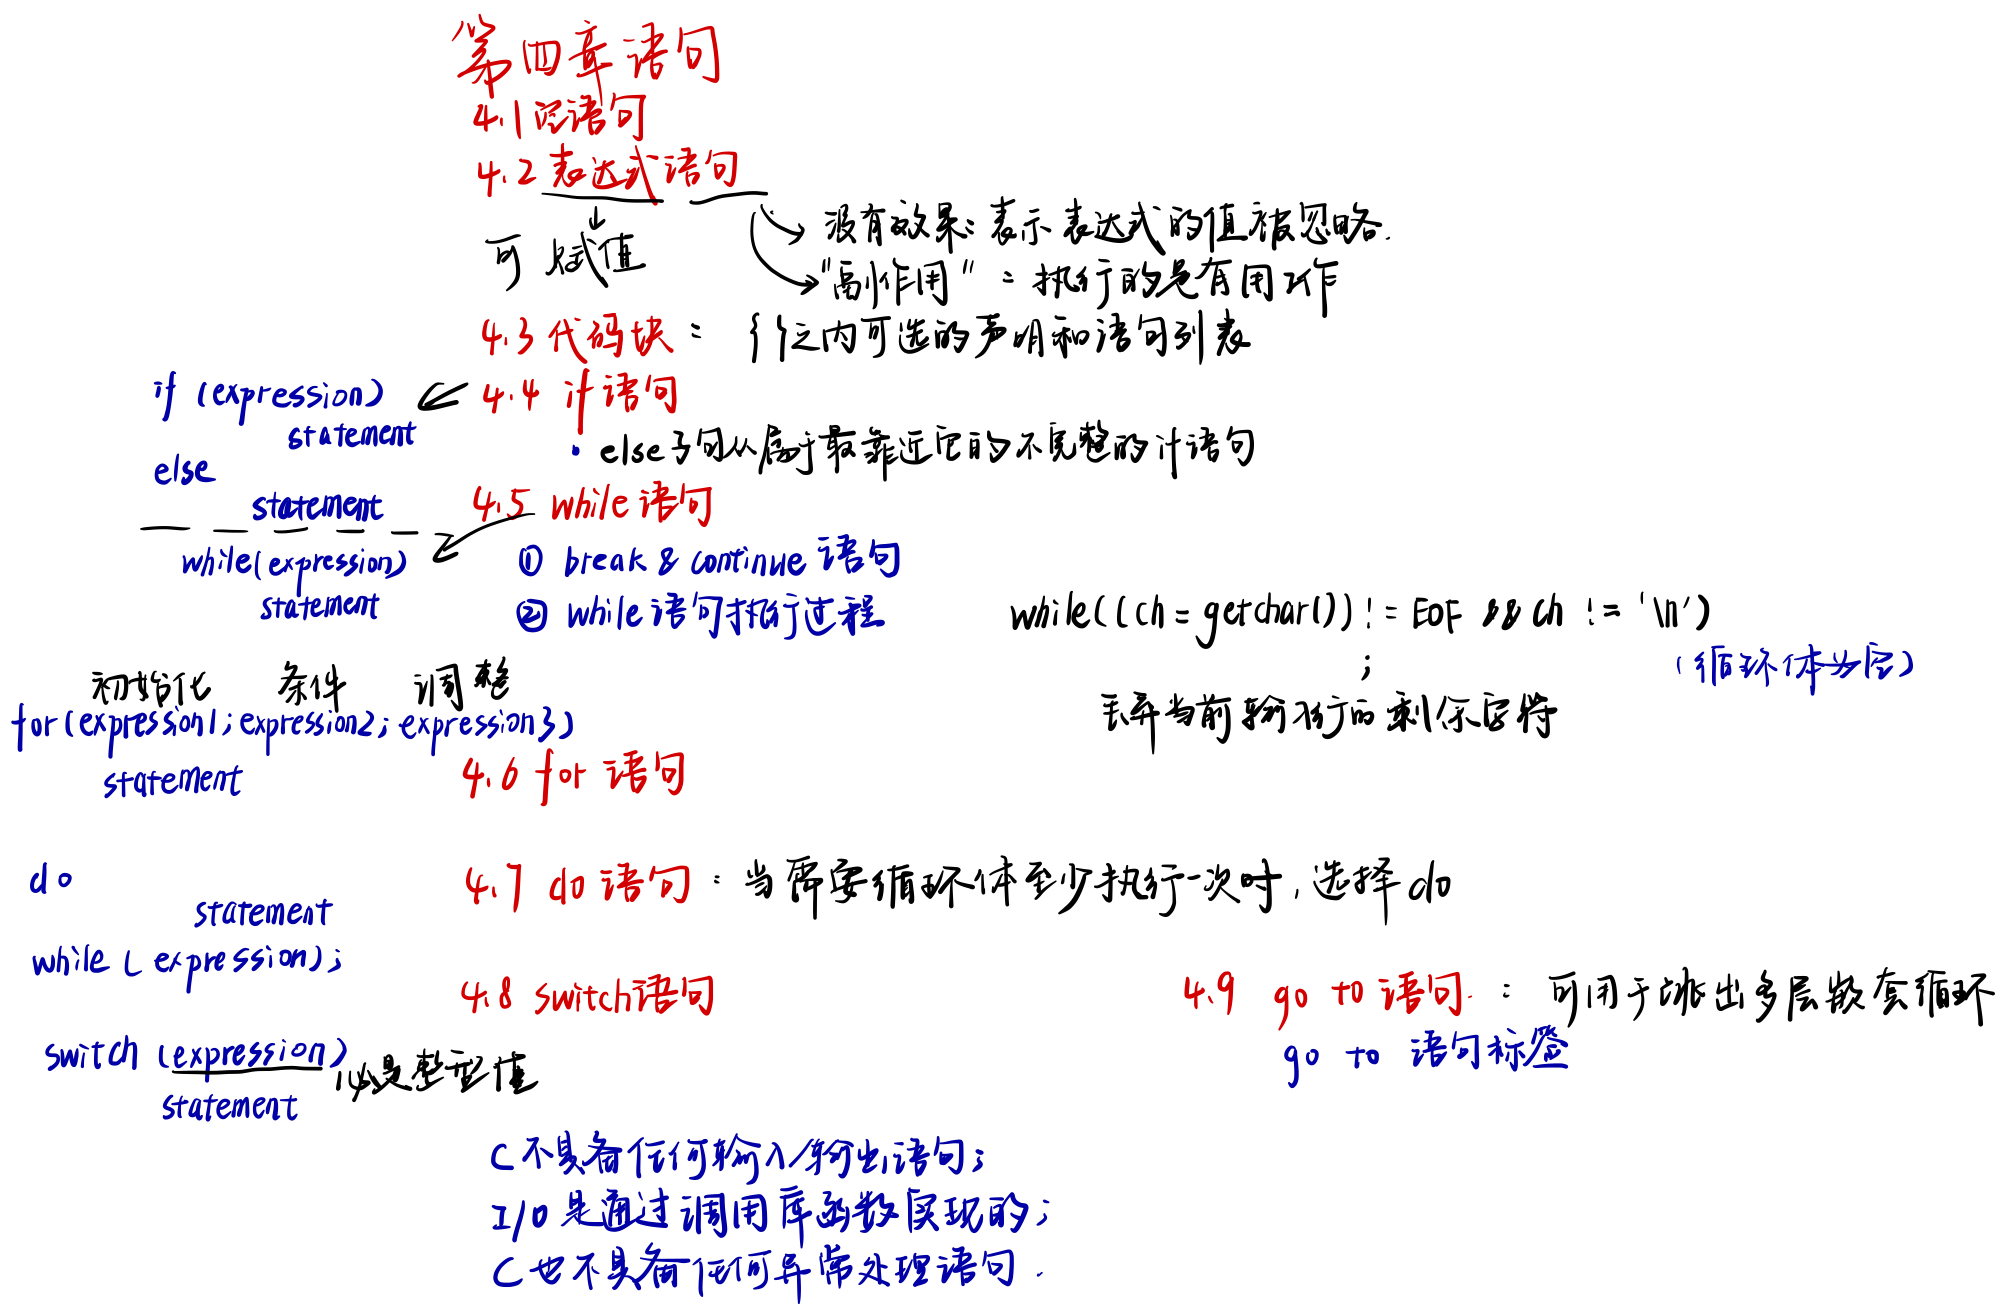 第四章 语句
4.1 空语句
4.2 表达式语句
可赋值
没有效果：表示表达式的值被忽略.
"副作用"：执行的是有用工作
4.3 代码块： { }之内可选的声明和语句列表
if (expression)
statement
else
statement
4.4 if 语句
· else子句从属于最靠近它的不完整的if语句
4.5 while 语句
while(expression)
statement
① break & continue 语句
② while 语句执行过程
while((ch = getchar()) != EOF && ch != '\n')
;
(循环体为空)
丢弃当前输入行的剩余字符
初始化 条件 调整
for(expression1; expression2; expression3)
statement
4.6 for 语句
do
statement
while (expression);
4.7 do 语句：当需要循环体至少执行一次时，选择do
4.8 switch语句
switch (expression)
必是整型值
statement
4.9 go to 语句. ： 可用于跳出多层嵌套循环
go to 语句标签
C不具备任何输入/输出语句;
I/O 是通过调用库函数实现的;
C也不具备任何异常处理语句.